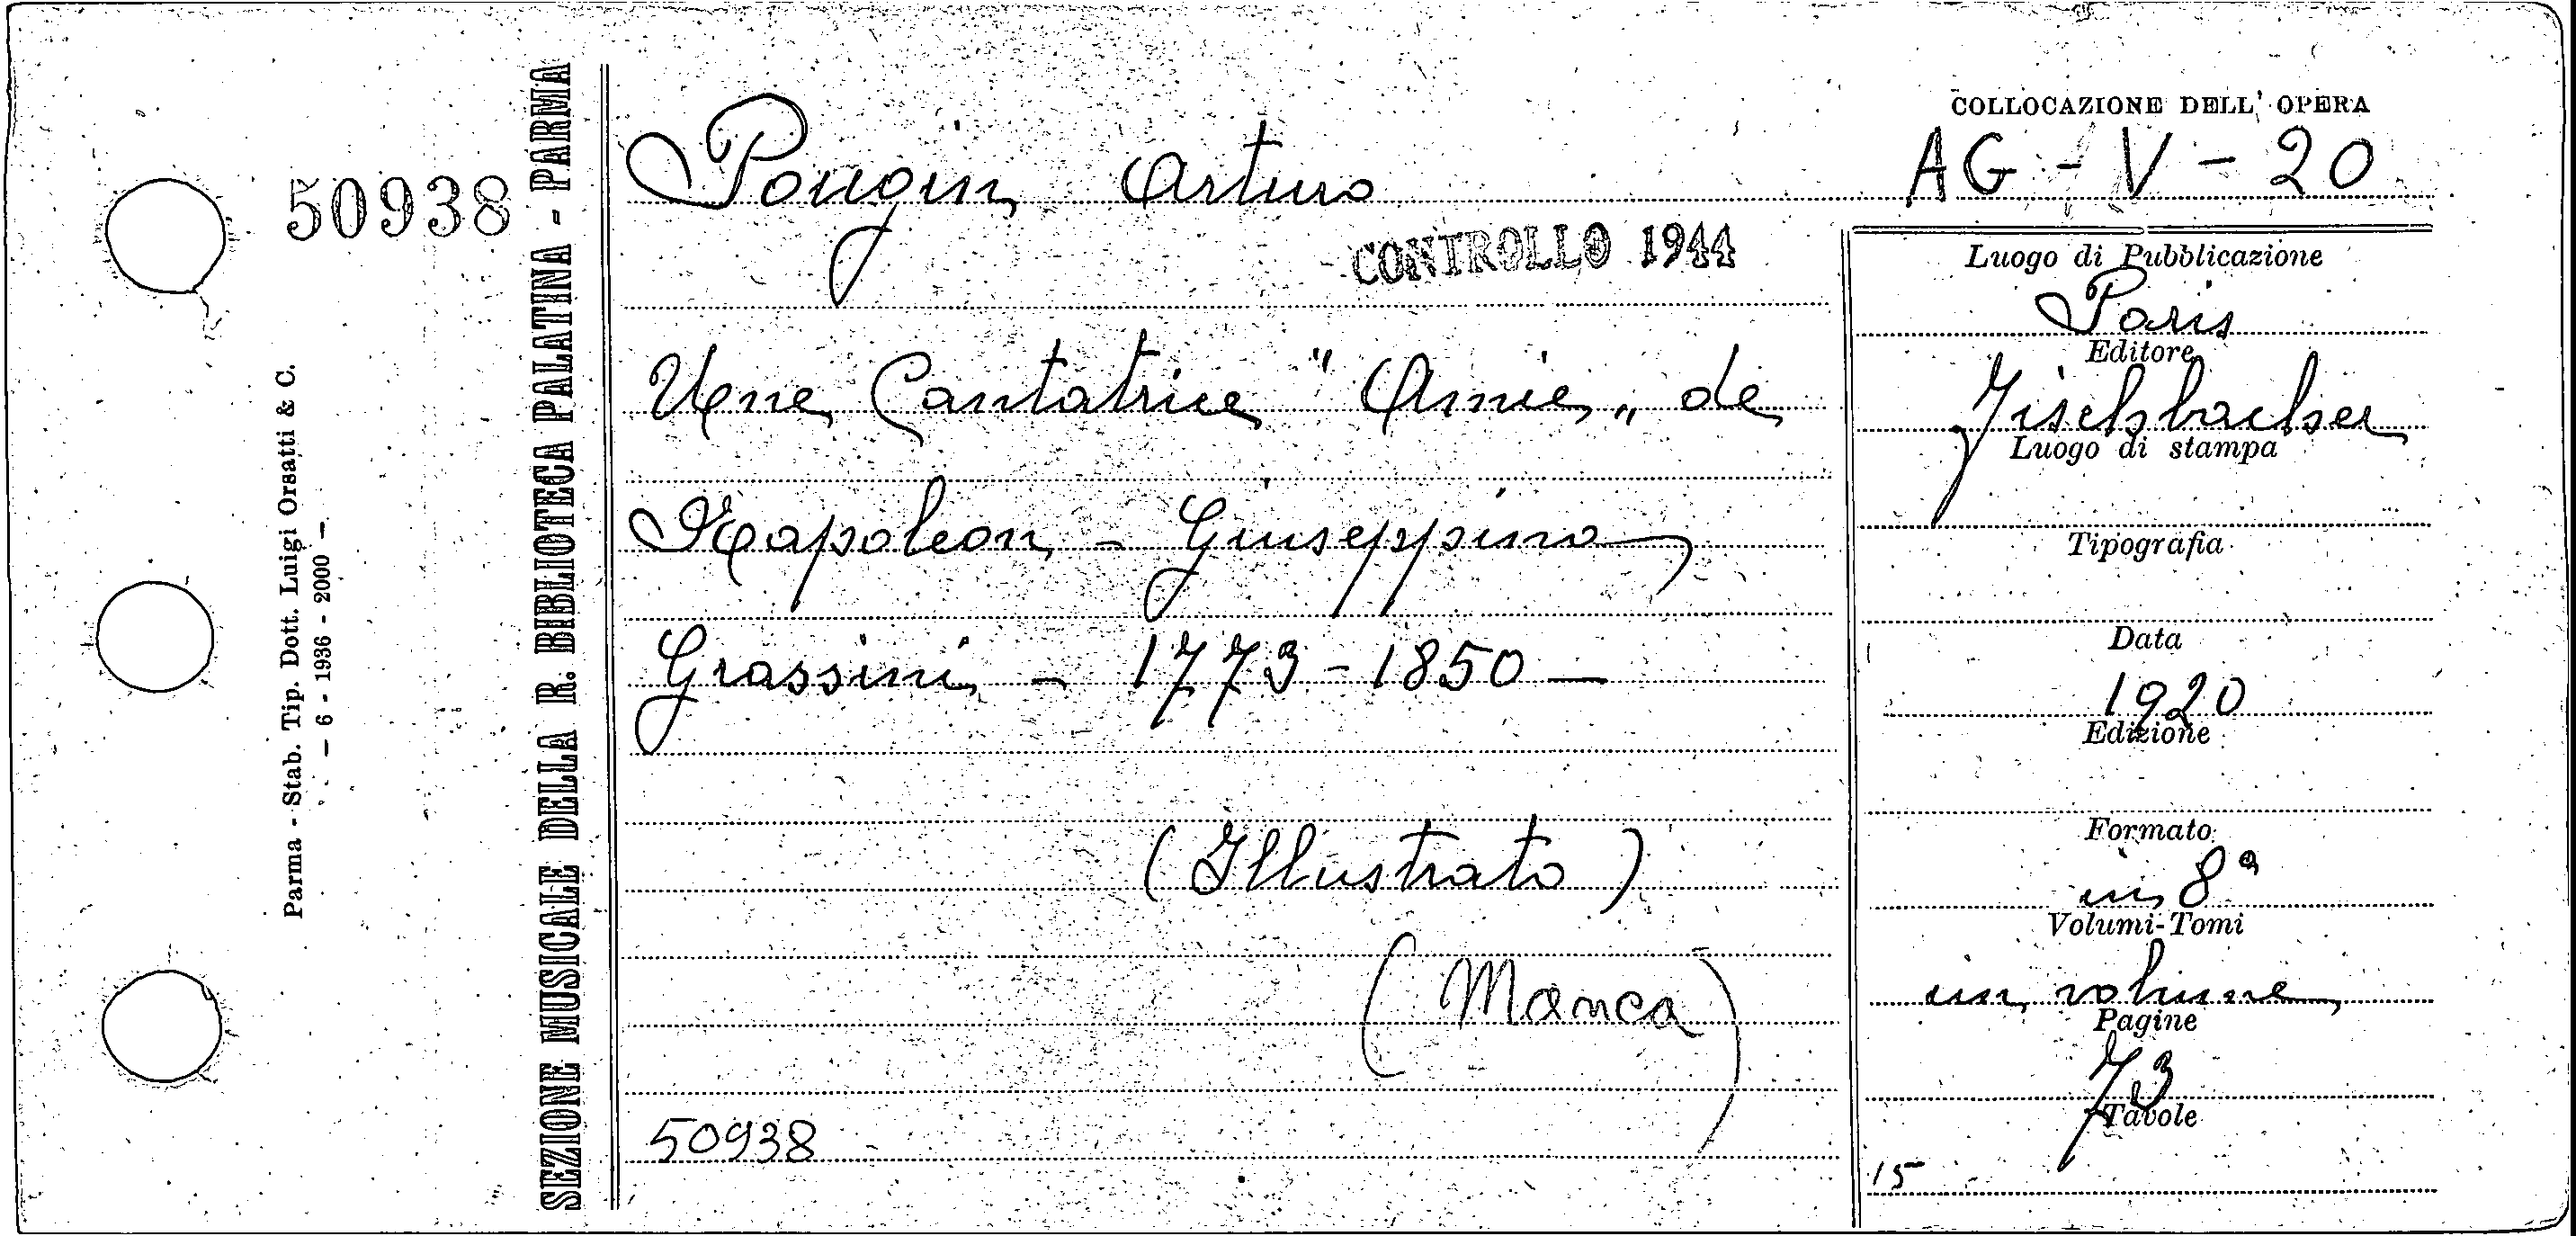 50938
Parma - Stab. Tip. Dott. Luigi Orsatti & C.
— 6 - 1936 - 2000 —
SEZIONE MUSICALE DELLA R. BIBLIOTECA PALATINA - PARMA
Pougin Arturo
CONTROLLO 1944
Une Cantatrice "Amie" de
Napoleon - Giuseppina
Grassini - 1773-1850 —
(Illustrato)
(Manca)
50938
COLLOCAZIONE DELL' OPERA
AG - V - 20
Luogo di Pubblicazione
Paris
Editore
Fischbacher
Luogo di stampa
Tipografia
Data
1920
Edizione
Formato
in 8º
Volumi-Tomi
un volume
Pagine
73
Tavole
15